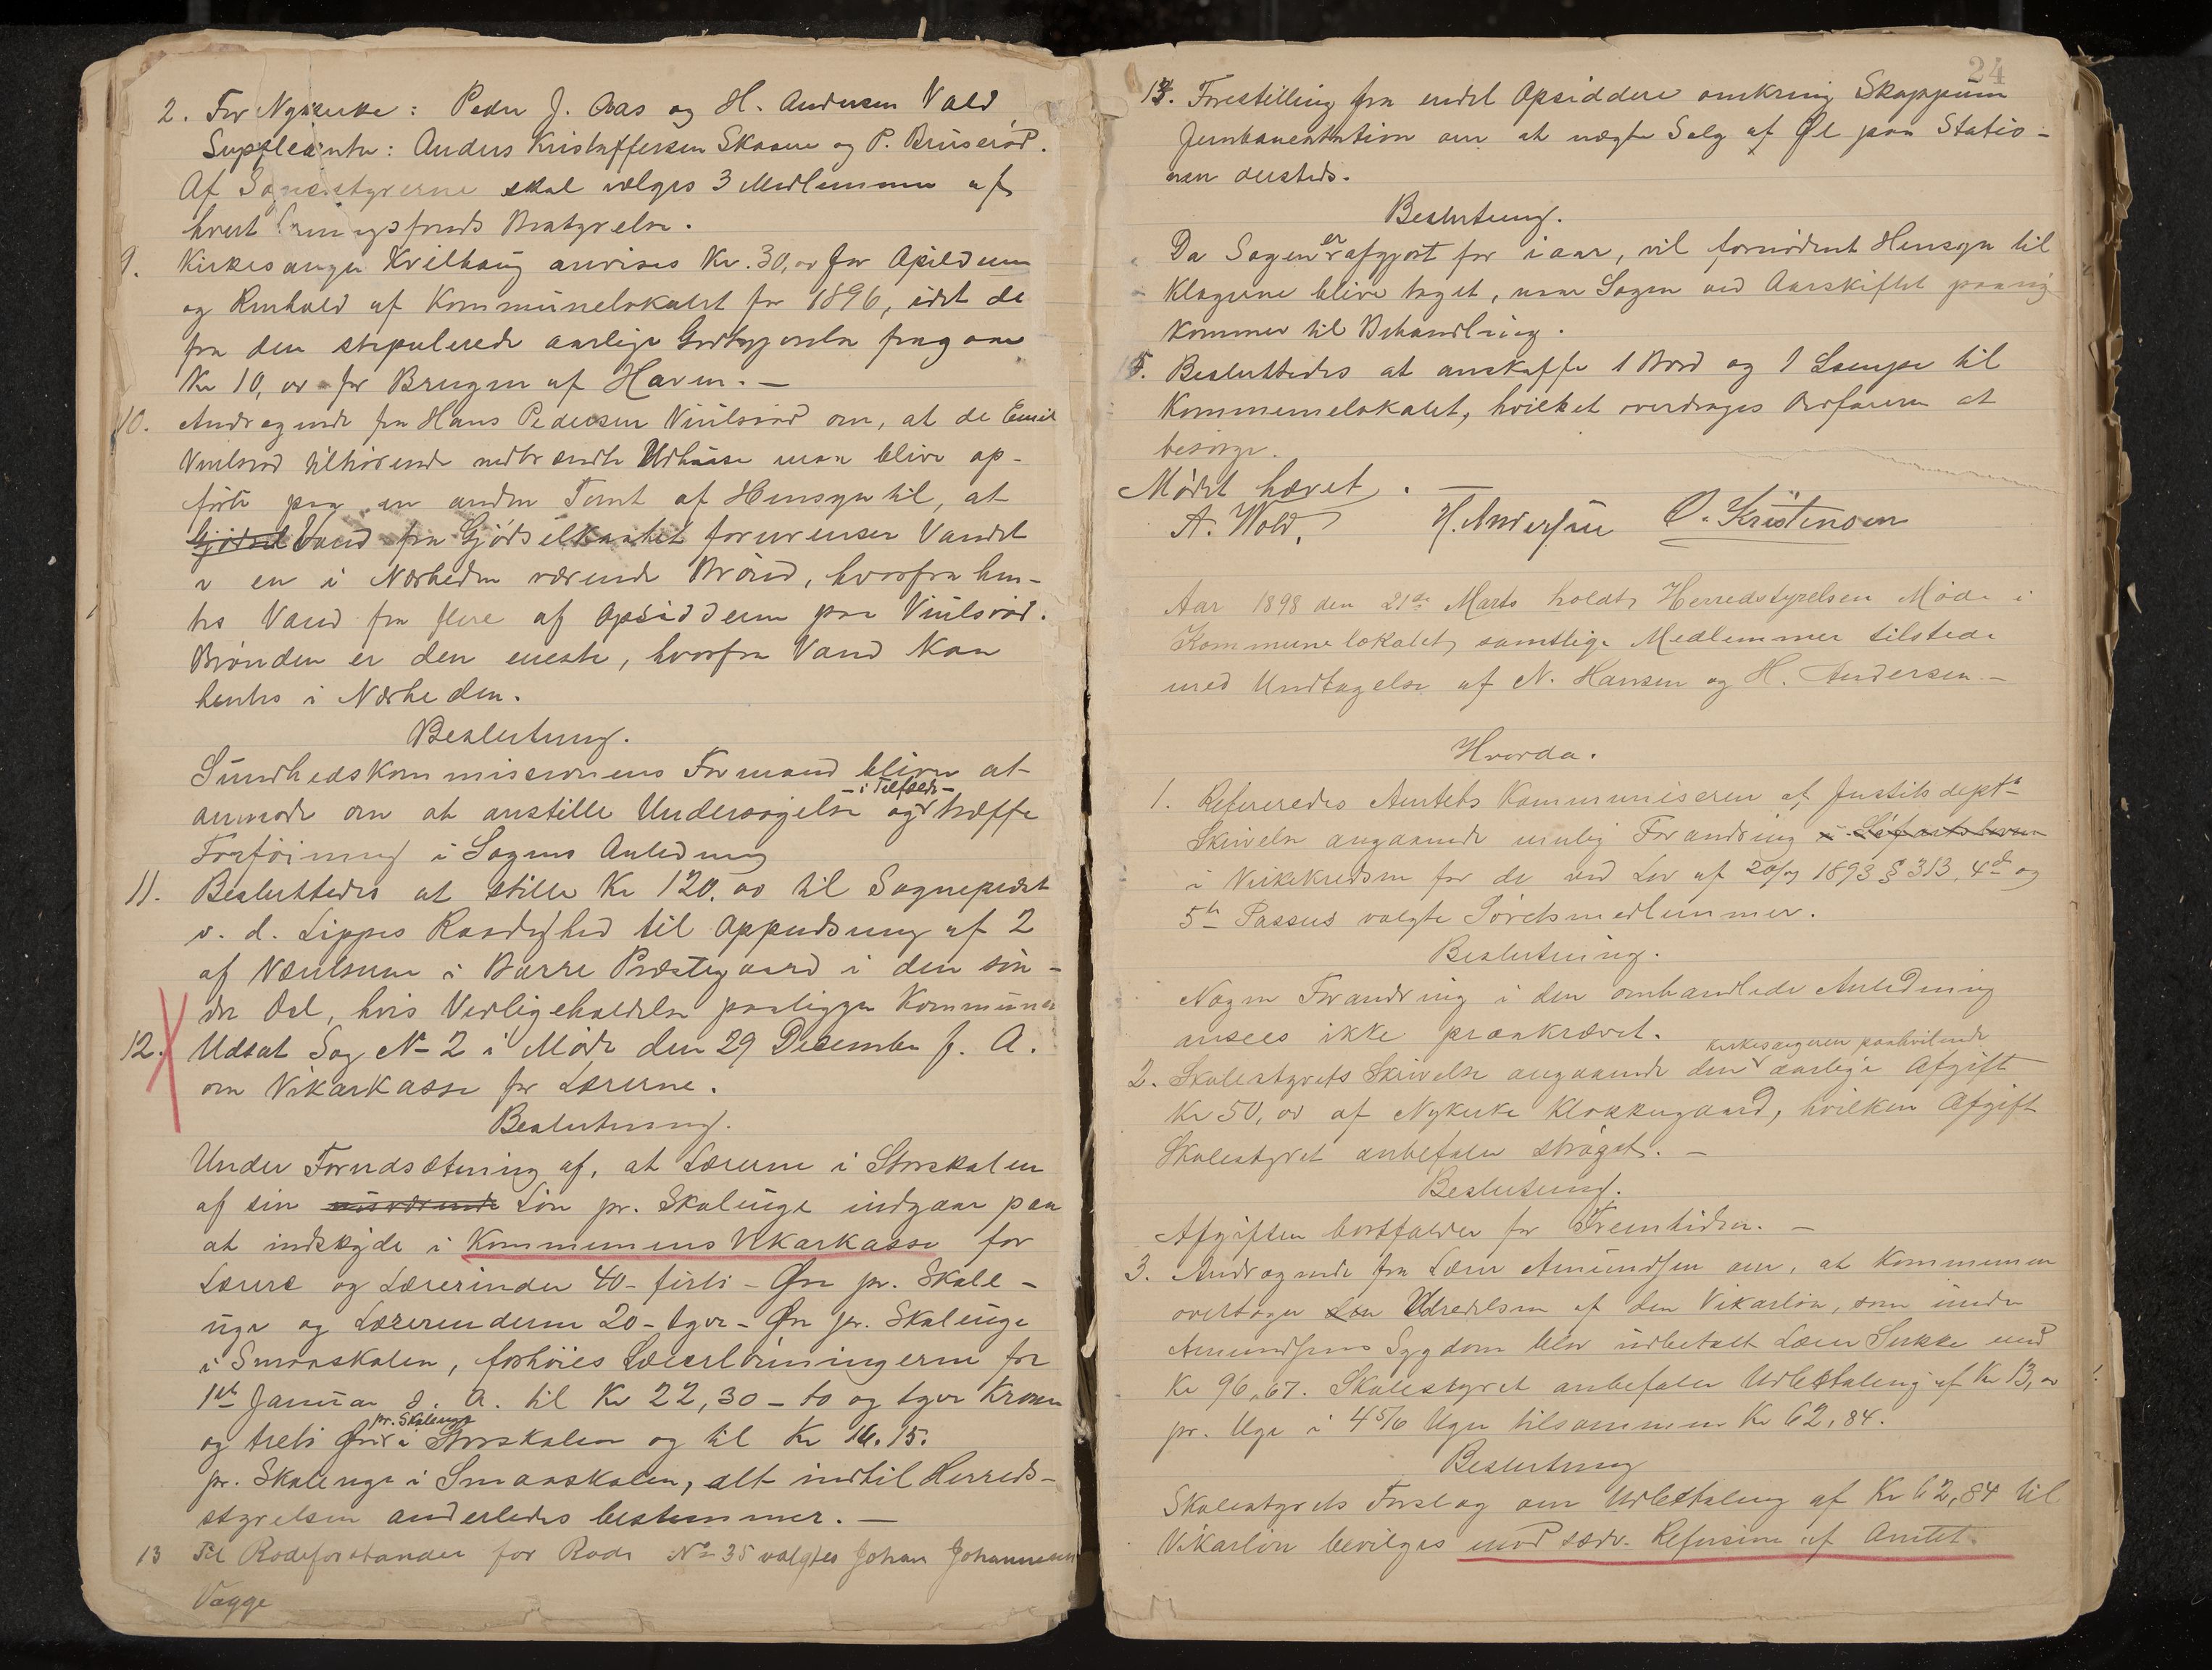 2. For Nykirke: Peder J. Aas og H. Andersen Vold
Suppleanter: Anders Kristoffersen Skaane og P. Bruserød.
Af Sognestyrerne skal vælges 3 Medlemmer af
hvert Bestyrelse.
9. Kirkesanger Kvilhaug anvises Kr. 30,00 for Opildnen
og Renhold af Kommunelokalet for 1896, idet de
fra den stipulerede aarlige Godtgjørelse fragaar
Kr 10,00 for Brugen af Haven. —
10. Andragende fra Hans Pedersen Vinilsrød om, at de Emil
Vinilsrød tilhørende nedbrændte Udhuse maa blive op-
førte paa en anden Tomt af Hensyn til, at
Gjødsel Vand fra Gjødselkastet forurenser Vandet
i en i Nærheden værende Brønd, hvorfra hen-
tes Vand for flere af Opsidderne paa Vinilsrød.
Brønden er den eneste, hvorfra Vand kan
hentes i Nærheden.
Beslutning.
Sundhedskommissionens Formand bliver at
- i Tilfælde -
anmode om at anstille Undersøgelse og træffe
Forføining i Sagens Anledning
11. Besluttedes at stille Kr 120.00 til Sogneprest
v. d. Lippes Raadighed til Oppudsning af 2
af Værelserne i Borre Præstegaard i den søn-
dre Del, hvis Vedligeholdelse paaligger Kommunen
12. Udsat Sag No 2 i Møde den 29 December f. A.
om Vikarkasse for Lærerne.
Beslutning.
Under Forudsætning af, at Lærerne i Storskolen
af sin nuværende Løn pr. Skoleuge indgaar paa
at indskyde i Kommunens Vikarkasse for
Lærere og Lærerinder 40 - firti - Øre pr. Skole-
uge og Lærerinderne 20 - tyve - Øre pr. Skoleuge
i Smaaskolen, forhøies Lærerlønningerne fra
1st Januar d. A. til Kr 22,30 - to og tyve Kroner
pr. Skoleuge
og treti Øre i Storskolen og til Kr 16.15.
pr. Skoleuge i Smaaskolen, alt indtil Herreds-
styrelsen anderledes bestemmer. —
13 Til Rodeforstander for Rode No 35 valgtes Johan Johannesen
Vagge
24
14. Forestilling fra endel Opsiddere omkring Skoppum
Jernbanestation om at nægte Salg af Øl paa Statio-
nen dersteds.
Beslutning.
er
Da Sagen afgjort for iaar, vil fornødent Hensyn til
Klagerne blive taget, naar Sagen ved Aarskiftet paany
kommer til Behandling.
15. Besluttedes at anskaffe 1 Bord og 1 Lampe til
Kommunelokalet, hvilket overdrages Ordføreren at
besørge.
Mødet hævet. —
A. Wold, H. Andersen O. Kristensen
Aar 1898 den 21de Marts holdt Herredstyrelsen Møde i
Kommunelokalet, samtlige Medlemmer tilstede
med Undtagelse af N. Hansen og H. Andersen. —
Hvorda.
1. Refereredes Amtets Kommuniseren af Justitsdepts
Skrivelse angaaende mulig Forandring i
i Virkekredsen for de ved Lov af 1893 § 313, 4de og
5te Passus valgte Søretsmedlemmer.
Beslutning.
Nogen Forandring i den omhandlede Anledning
ansees ikke paakrævet.
kirkesangeren paahvilende
2. Skolestyrets Skrivelse angaaende den aarlige Afgift
Kr 50,00 af Nykirke Klokkergaard, hvilken Afgift
Skolestyret anbefaler strøget. —
Beslutning.
Afgiften bortfalder for Fremtiden. —
3. Andragende fra Lærer Amundsen om, at Kommunen
overtager den Udredelsen af den Vikarløn, som under
Amundsens Sygdom blev udbetalt Lærer med
Kr 96,67. Skolestyret anbefaler Udbetaling af Kr 13,00
pr. Uge i 4 5/6 Uger tilsammen Kr 62,84.
Beslutning
Skolestyrets Forslag om Udbetaling af Kr 62,84 til
Vikarløn bevilges mod sædv. Refusion af Amtet.